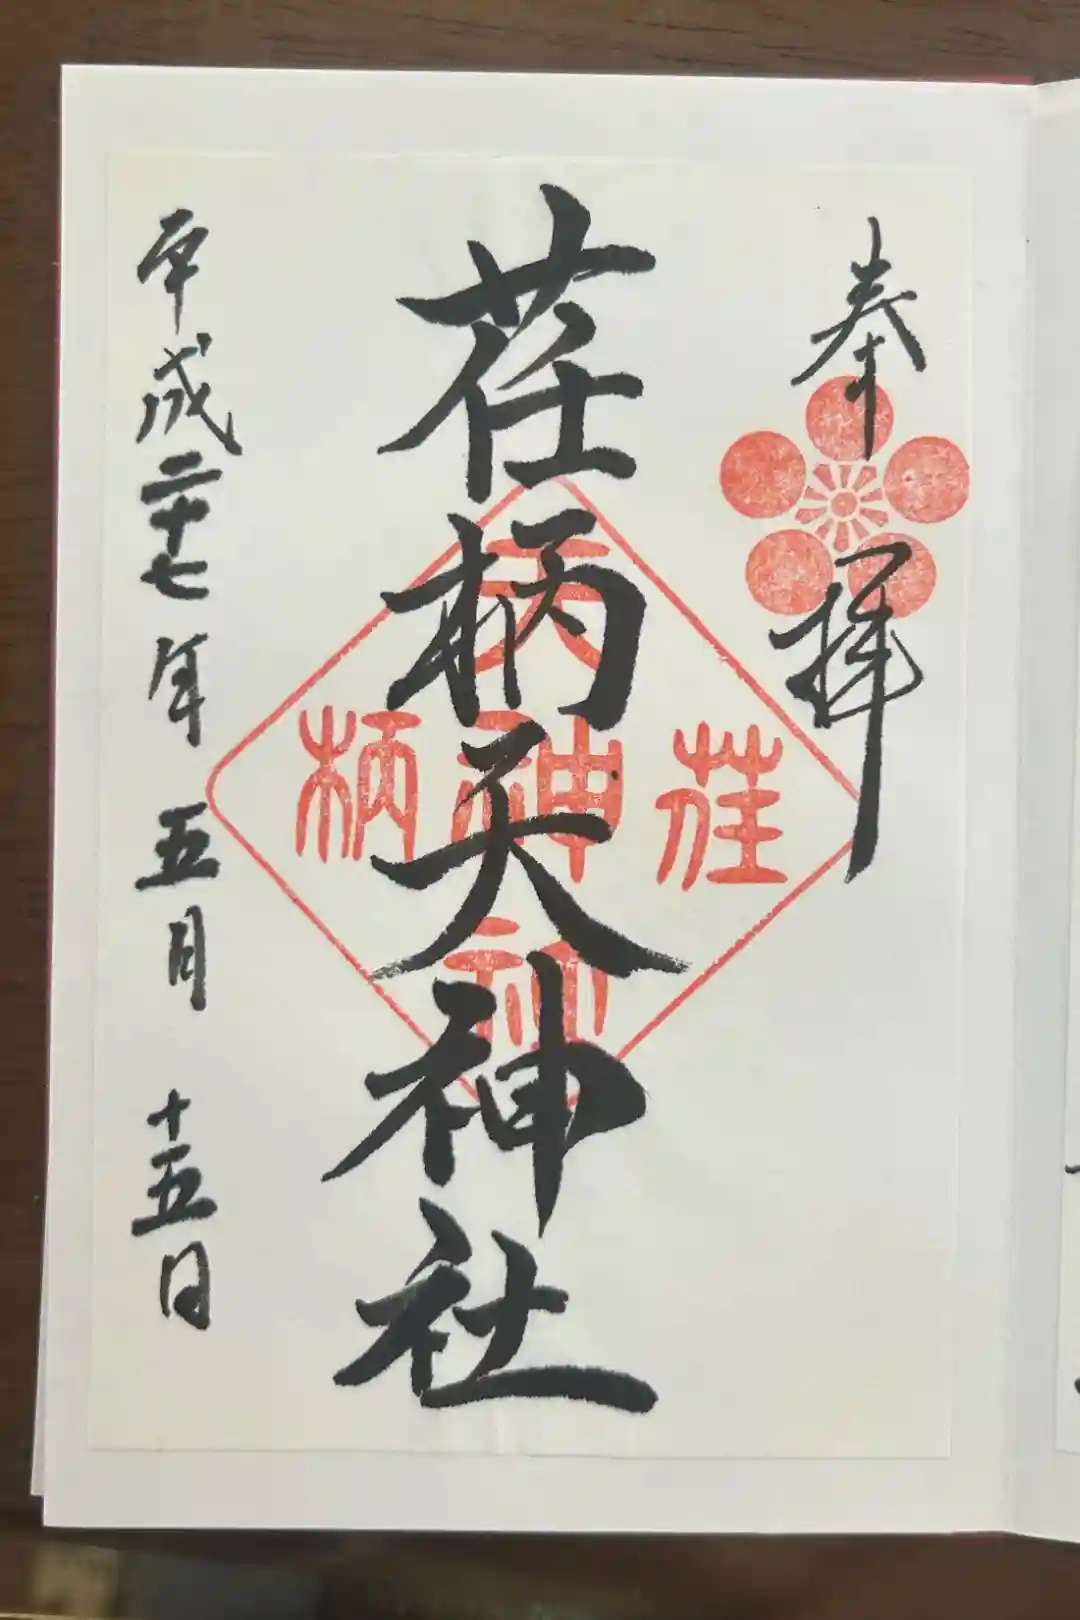 奉拝
荏柄天神社
平成二十七年五月十五日
荏
天神社
柄